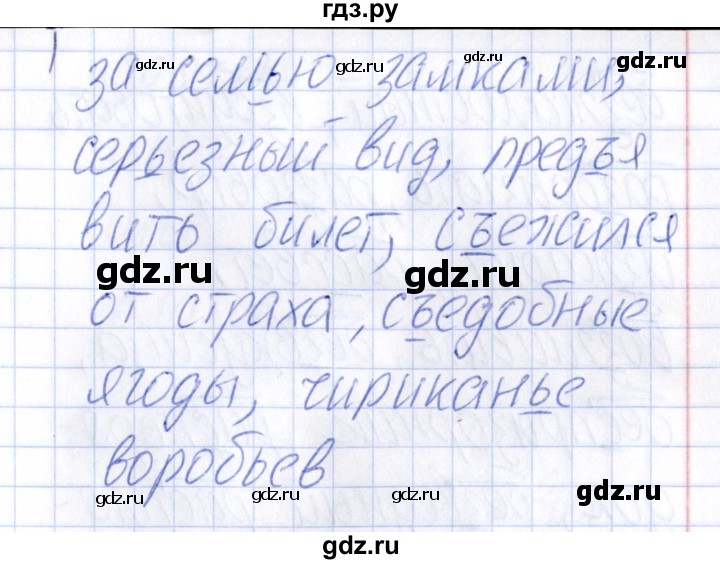 гдз.ру
gdz.ru gdz.ru gdz.ru
за семью замками,
серьезный вид, предъя
вить билет, съежился
gdz.ru gdz.ru
от страха, съедобные
ягоды, чириканье
воробьев
gdz.ru gdz.ru gdz.ru gdz.ru
gdz.ru